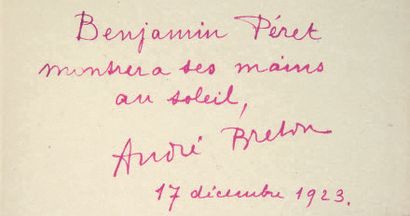 Benjamin Péret
montrera ses mains
au soleil,
André Breton
17 décembre 1923.